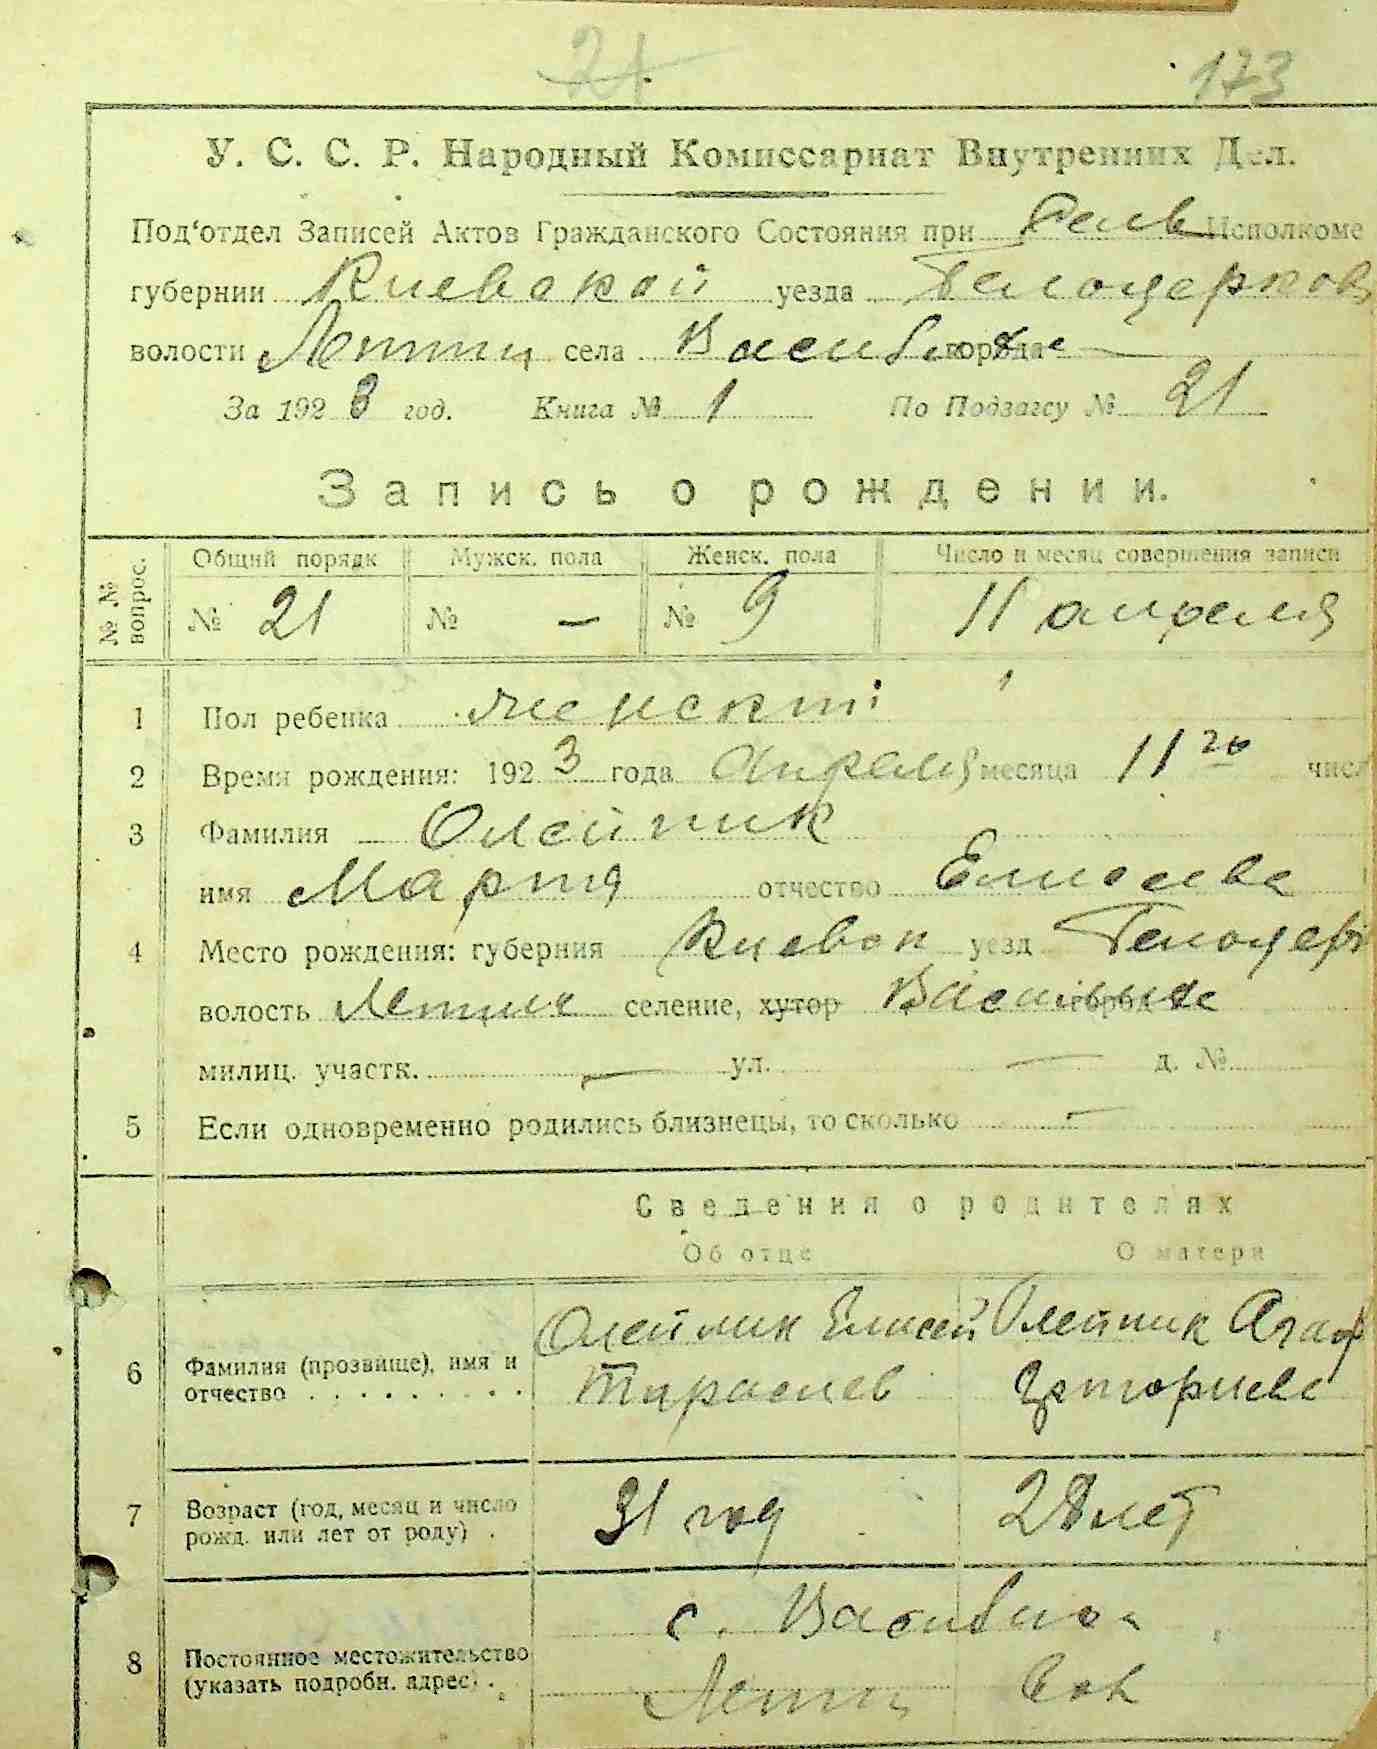 21
173
У. С. С. Р. Народный Комиссариат Внутренних Дел.
Под'отдел Записей Актов Гражданского Состояния при Сель Исполкоме
губернии Киевской уезда Белоцерков
волости села города
За 1923 год. Книга № 1 По Подзагсу № 21
Запись о рождении.
№ № вопрос.
Общий порядк Мужск. пола Женск. пола Число и месяц совершения записи
№ 21 № — № 9 11 апреля
1 Пол ребенка женский
2 Время рождения: 1923 года Апреля месяца 11го числ
3 Фамилия Олейник
имя Марта отчество Елисеева
4 Место рождения: губерния Киевск уезд Белоцерк
волость селение, хутор город
милиц. участк. — ул. — д. №
5 Если одновременно родились близнецы, то сколько —
Сведения о родителях
Об отце О матери
6 Фамилия (прозвище), имя и отчество Олейник Елисей Тарасиев Олейник Агаф
7 Возраст (год, месяц и число рожд. или лет от роду) 31 год 28 лет
8 Постоянное местожительство (указать подробн. адрес) с.